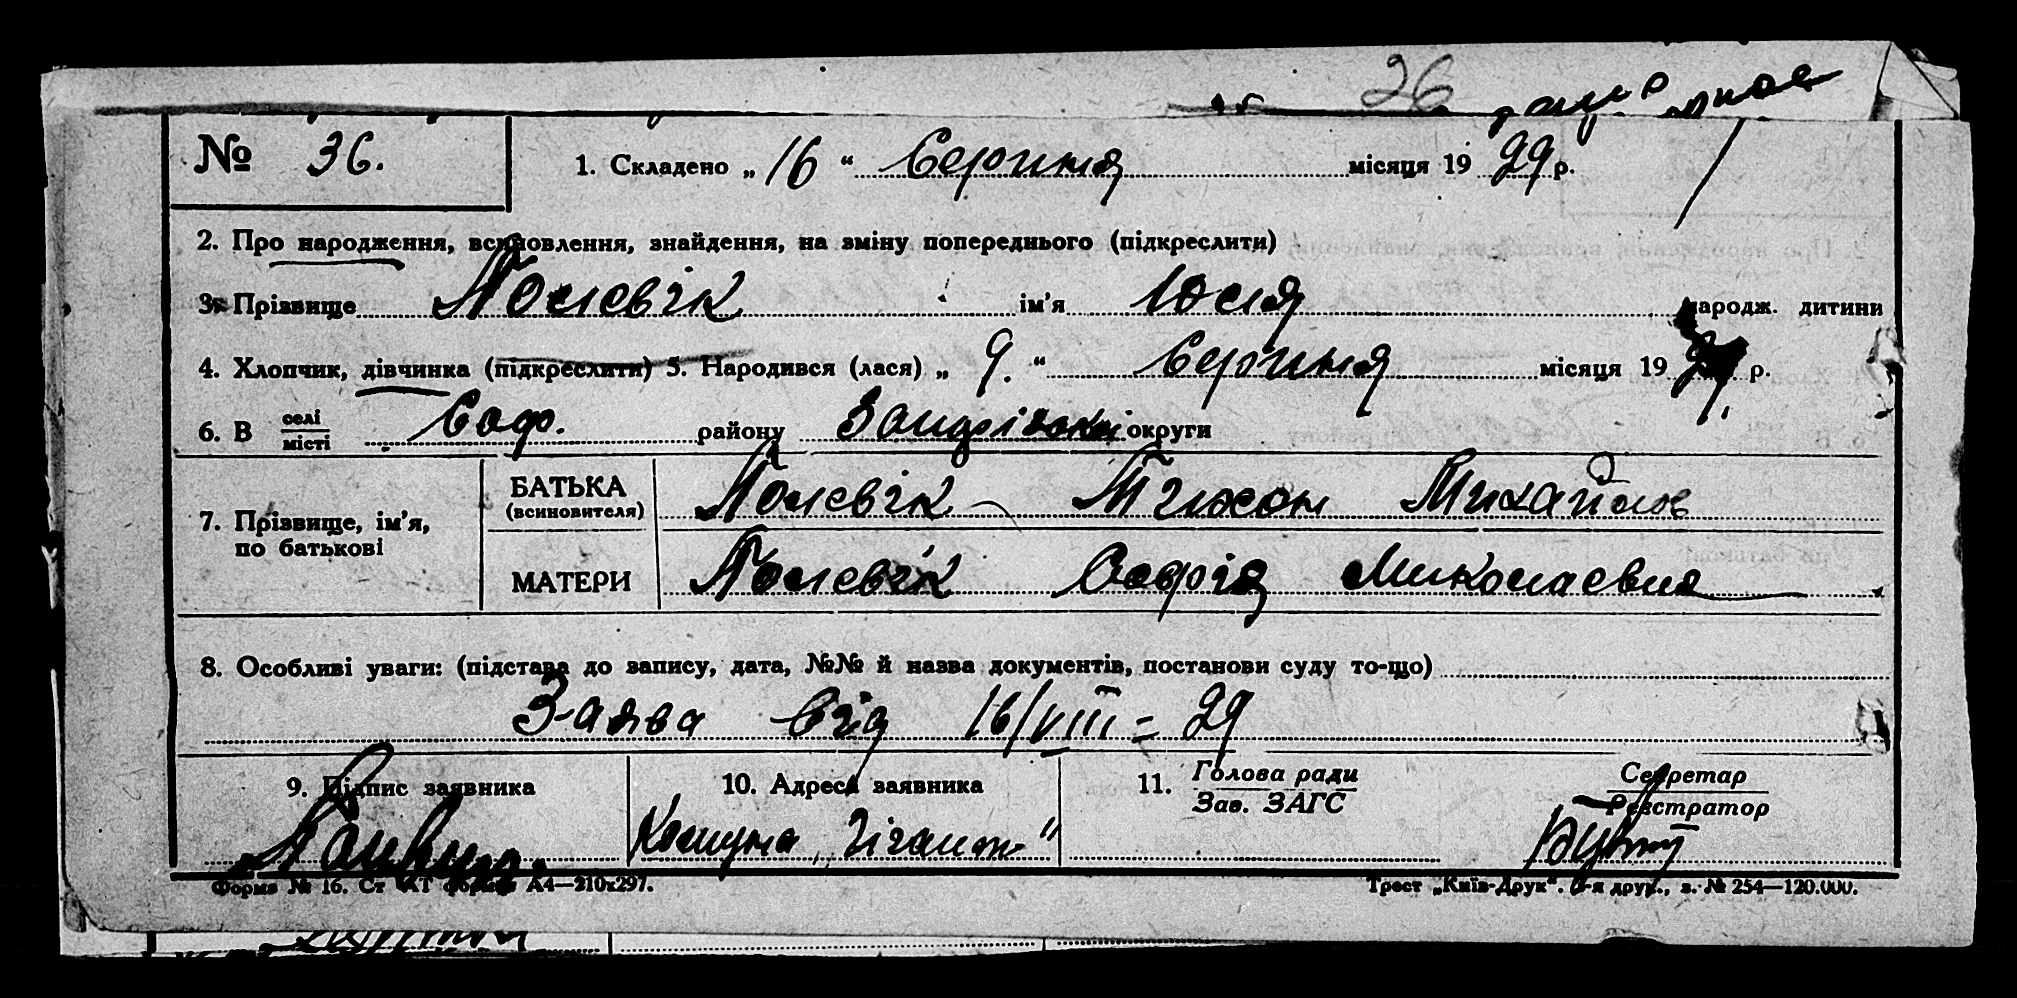 26
№ 36. 1. Складено „16“ Серпня місяця 1929 р.
2. Про народження, всиновлення, знайдення, на зміну попереднього (підкреслити)
3. Прізвище Полевік ім'я Юля народж. дитини
4. Хлопчик, дівчинка (підкреслити) 5. Народився (лася) „9.“ Серпня місяця 1929 р.
6. В селі/місті Соф. району округи
7. Прізвище, ім'я, по батькові
БАТЬКА (всиновителя) Полевік Тихон Михайлов
МАТЕРИ Полевік Софія Миколаевна
8. Особливі уваги: (підстава до запису, дата, №№ й назва документів, постанови суду то-що)
Заява від 16/VIII – 29
9. Підпис заявника 10. Адреса заявника 11. Голова ради/Зав. ЗАГС Секретар/Реєстратор
Комуна „Гігант"
Форма № 16. Ст формат А4—210х297. Трест „Київ-Друк“. 6-я друк., з. № 254—120.000.